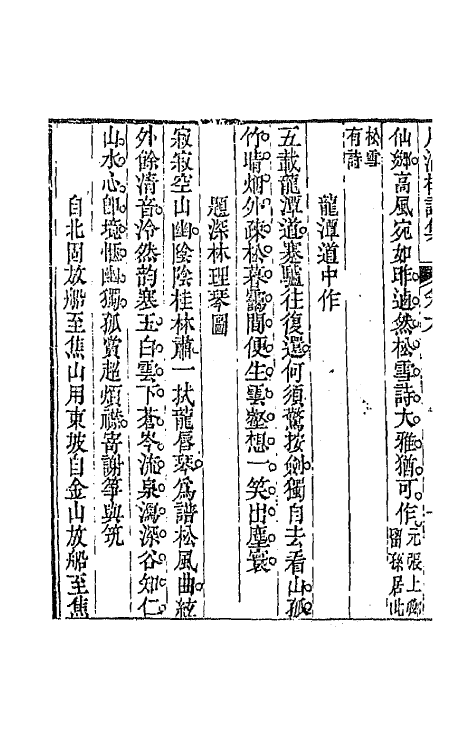 仙鄉高風宛如昨逌然松雪詩大雅猶可作元張上卿留孫居此
松雪有詩
龍潭道中作
五載龍潭道蹇驢往復還何須驚按劍獨自去看山孤
竹晴烟外疎松暮靄間便生雲壑想一笑出塵寰
題深林理琴圖
寂寂空山幽陰陰桂林肅一狀龍唇琴爲譜松風曲絃
外餘清音泠然韵寒玉白雲下蒼岑流泉瀉深谷知仁
山水心卽境愜幽獨孤賞超煩襟寄謝箏與筑
自北固放船至焦山用東坡自金山放船至焦